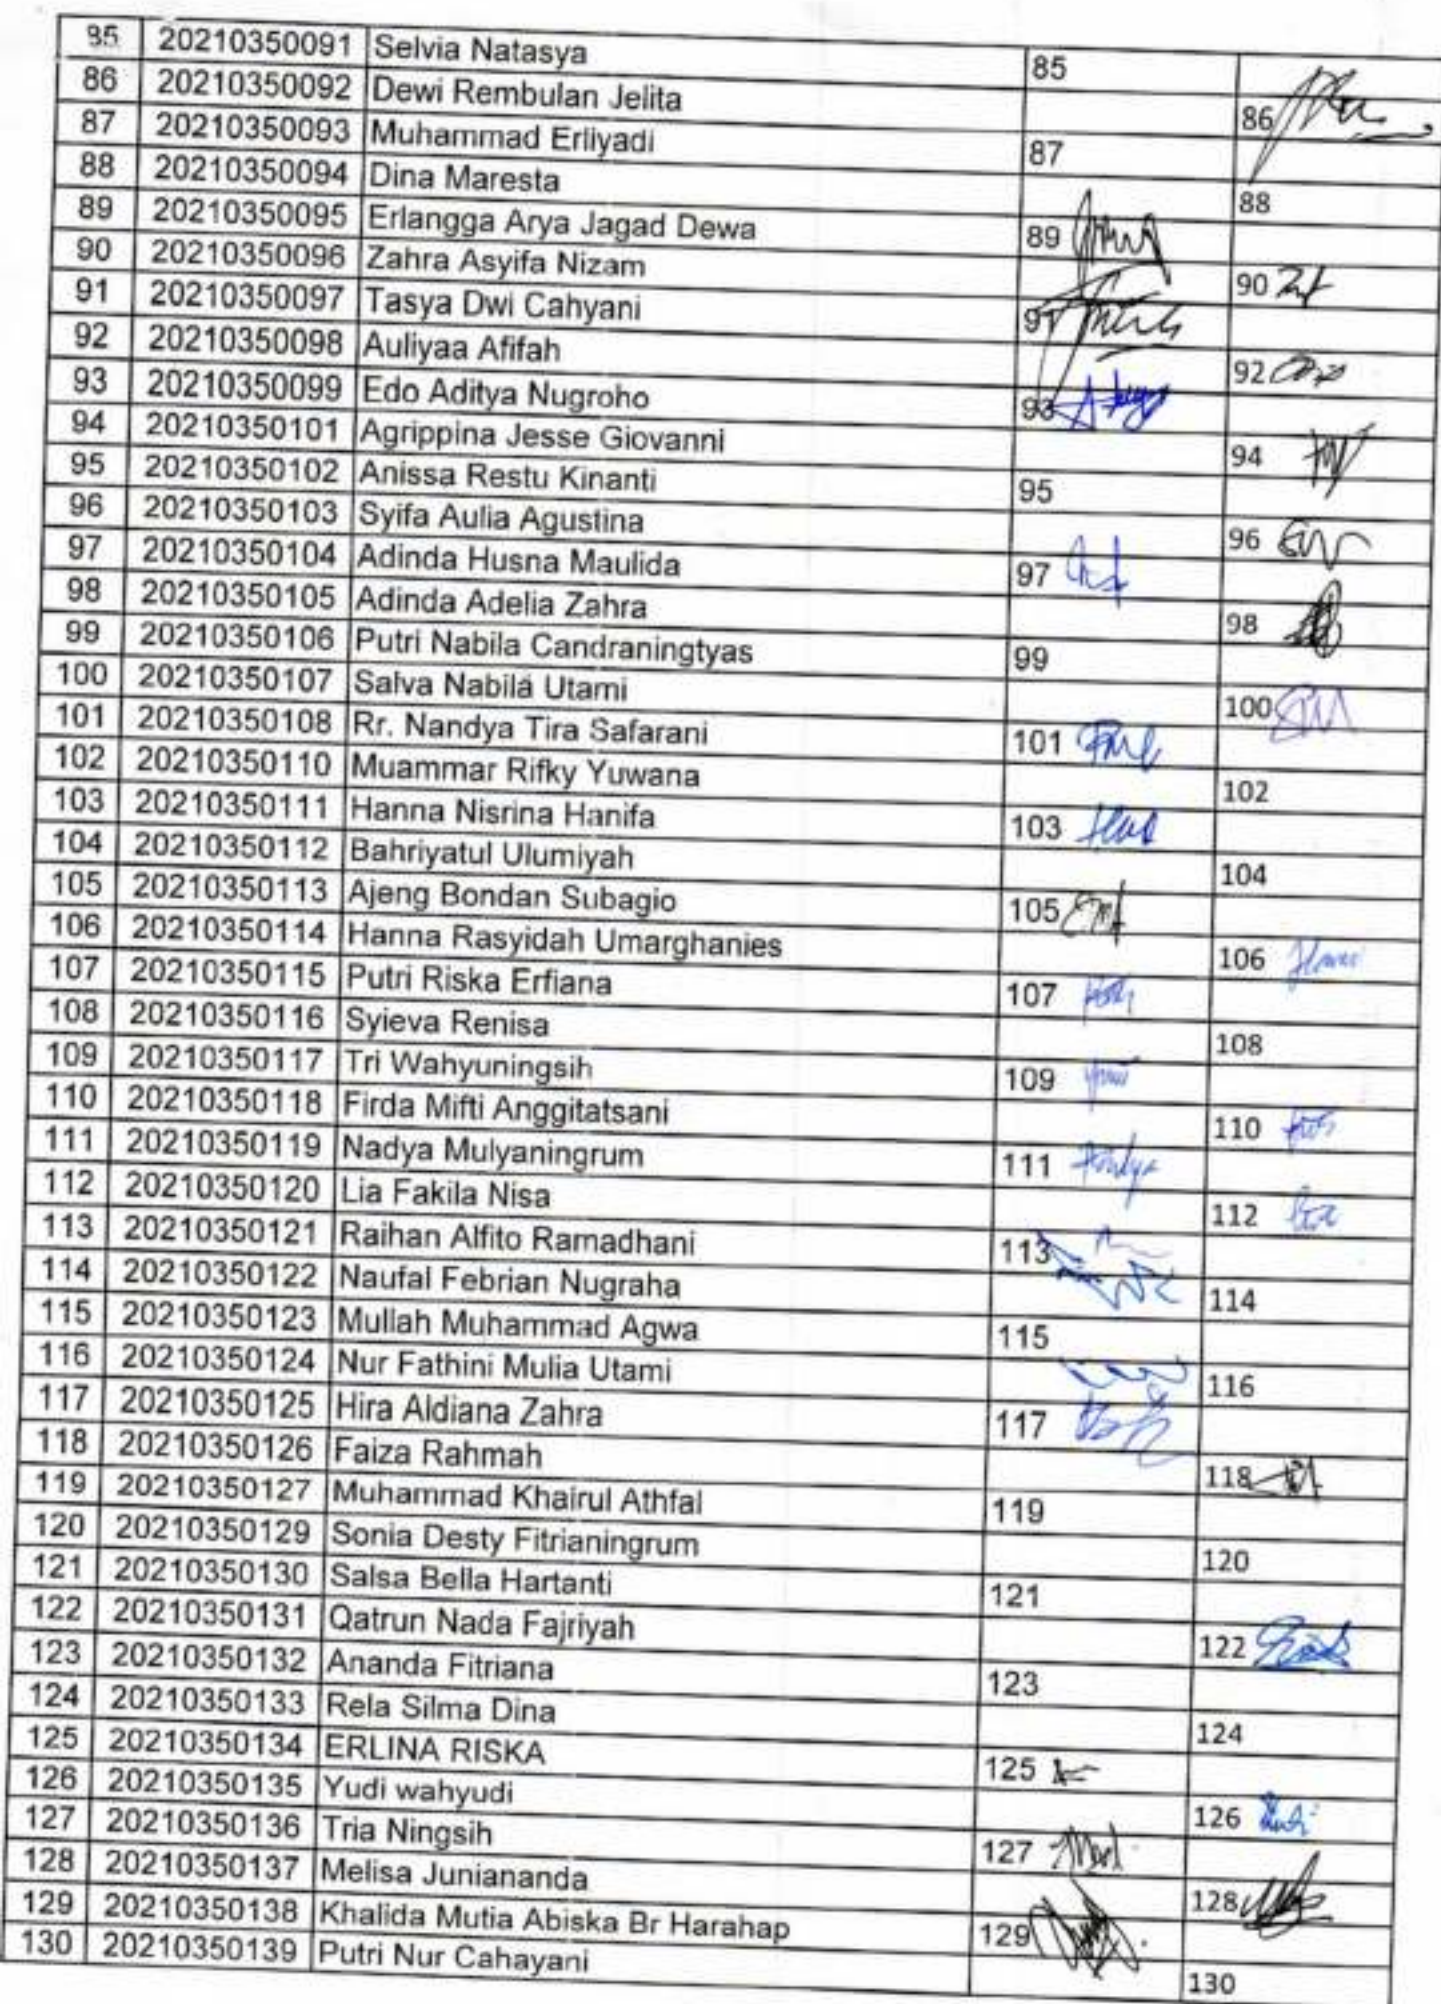 85 20210350091 Selvia Natasya 85
86 20210350092 Dewi Rembulan Jelita 86
87 20210350093 Muhammad Erliyadi 87
88 20210350094 Dina Maresta 88
89 20210350095 Erlangga Arya Jagad Dewa 89
90 20210350096 Zahra Asyifa Nizam 90
91 20210350097 Tasya Dwi Cahyani 91
92 20210350098 Auliyaa Afifah 92
93 20210350099 Edo Aditya Nugroho 93
94 20210350101 Agrippina Jesse Giovanni 94
95 20210350102 Anissa Restu Kinanti 95
96 20210350103 Syifa Aulia Agustina 96
97 20210350104 Adinda Husna Maulida 97
98 20210350105 Adinda Adelia Zahra 98
99 20210350106 Putri Nabila Candraningtyas 99
100 20210350107 Salva Nabila Utami 100
101 20210350108 Rr. Nandya Tira Safarani 101
102 20210350110 Muammar Rifky Yuwana 102
103 20210350111 Hanna Nisrina Hanifa 103
104 20210350112 Bahriyatul Ulumiyah 104
105 20210350113 Ajeng Bondan Subagio 105
106 20210350114 Hanna Rasyidah Umarghanies 106
107 20210350115 Putri Riska Erfiana 107
108 20210350116 Syieva Renisa 108
109 20210350117 Tri Wahyuningsih 109
110 20210350118 Firda Mifti Anggitatsani 110
111 20210350119 Nadya Mulyaningrum 111
112 20210350120 Lia Fakila Nisa 112
113 20210350121 Raihan Alfito Ramadhani 113
114 20210350122 Naufal Febrian Nugraha 114
115 20210350123 Mullah Muhammad Agwa 115
116 20210350124 Nur Fathini Mulia Utami 116
117 20210350125 Hira Aldiana Zahra 117
118 20210350126 Faiza Rahmah 118
119 20210350127 Muhammad Khairul Athfal 119
120 20210350129 Sonia Desty Fitrianingrum 120
121 20210350130 Salsa Bella Hartanti 121
122 20210350131 Qatrun Nada Fajriyah 122
123 20210350132 Ananda Fitriana 123
124 20210350133 Rela Silma Dina 124
125 20210350134 ERLINA RISKA 125
126 20210350135 Yudi wahyudi 126
127 20210350136 Tria Ningsih 127
128 20210350137 Melisa Juniananda 128
129 20210350138 Khalida Mutia Abiska Br Harahap 129
130 20210350139 Putri Nur Cahayani 130